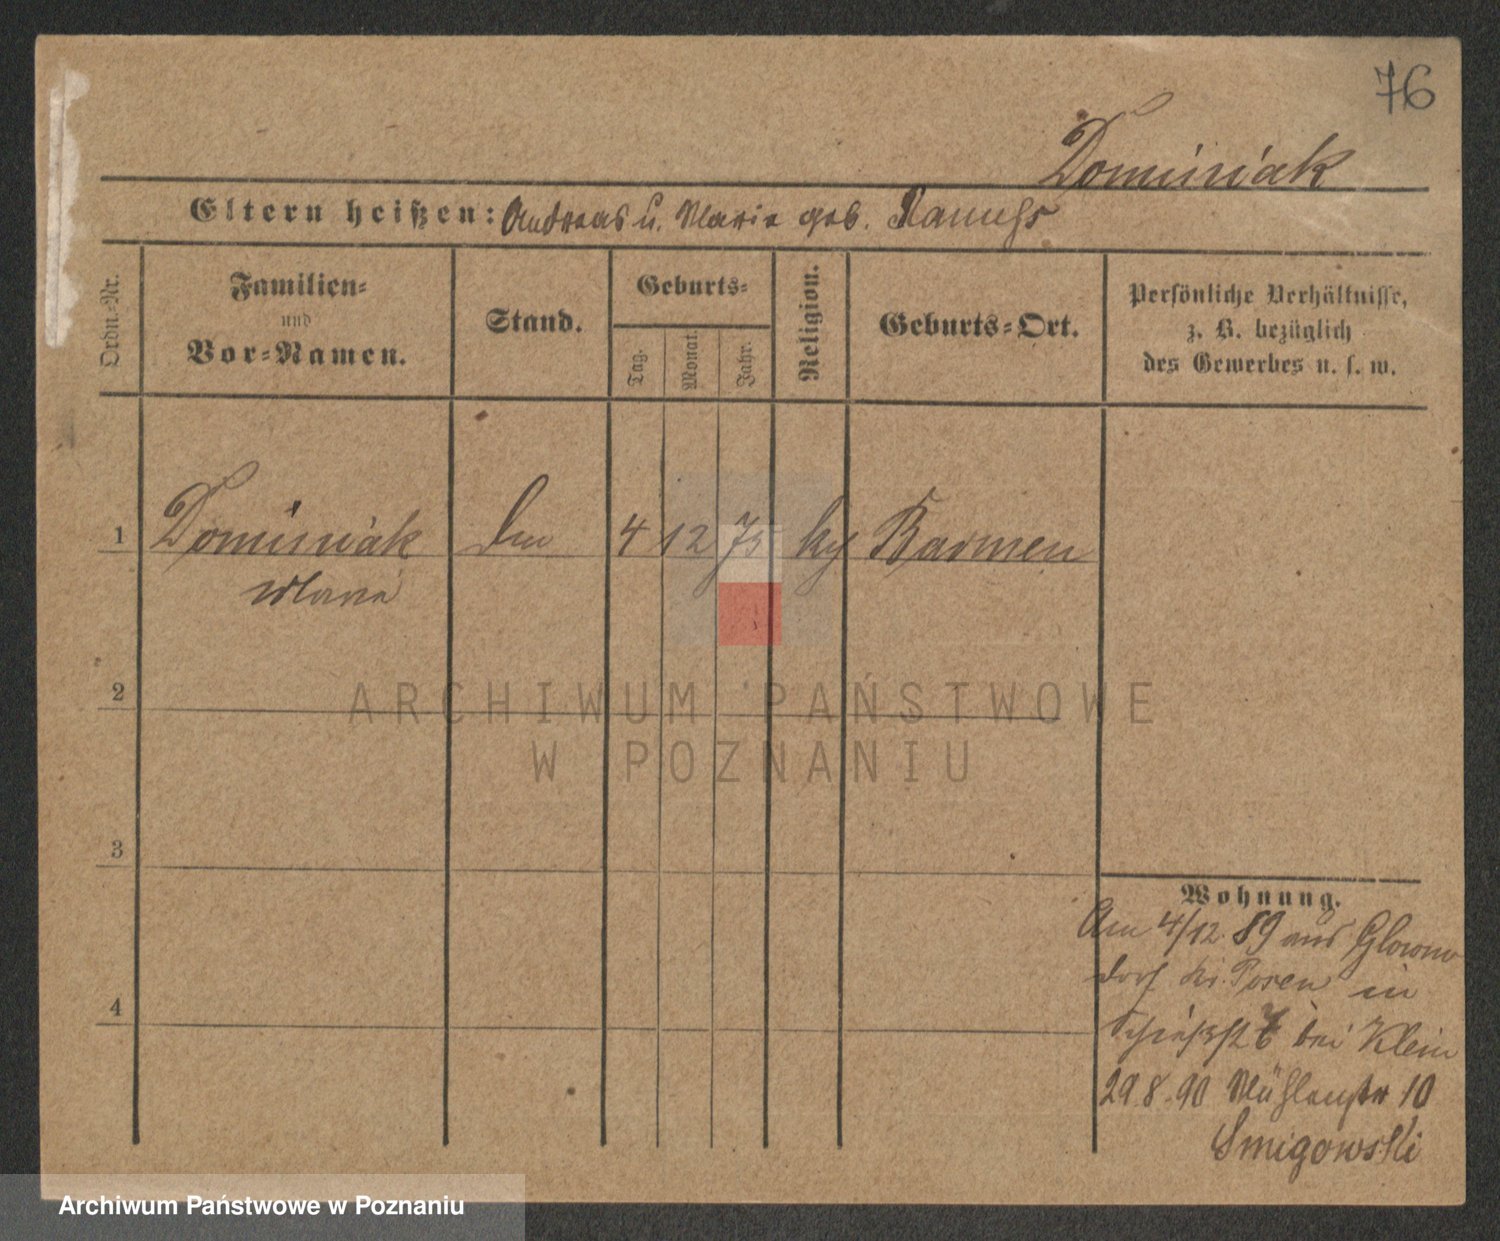 76
Dominiak
Eltern heißen: Andreas u. Marie geb.
Ordn.-Nr.
Familien-
und
Vor-Namen.
Stand.
Geburts-
Tag.
Monat.
Jahr.
Religion.
Geburts-Ort.
Persönliche Verhältnisse,
z. B. bezüglich
des Gewerbes u. s. w.
1 Dominiak 4 12 75 Barmen
Maria
2
3
4
Wohnung.
Am 4/12 89 aus
dorf Kr. Posen in
bei Klein
29.8.90 Mühlenstr 10
Smigowski
ARCHIWUM PAŃSTWOWE
W POZNANIU
Archiwum Państwowe w Poznaniu